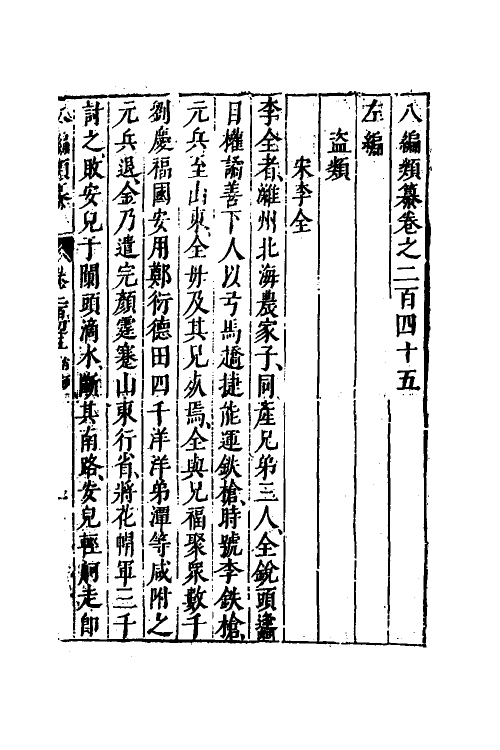 八編類纂卷之二百四十五
左編
盜類
宋李全
李全者濰州北海農家子同產兄弟三人全銳頭蠭
目權譎善下人以弓馬趫捷能運鉄槍時號李鉄槍
元兵至山東全母及其兄死焉全與兄福聚眾數千
劉慶福國安用鄭衍德田四于洋洋弟潭等咸附之
元兵退金乃遣完顏霆蹇山東行省將花帽軍三千
討之敗安兒于闌頭滴水斷其南路安兒輕舸走即
八編類纂